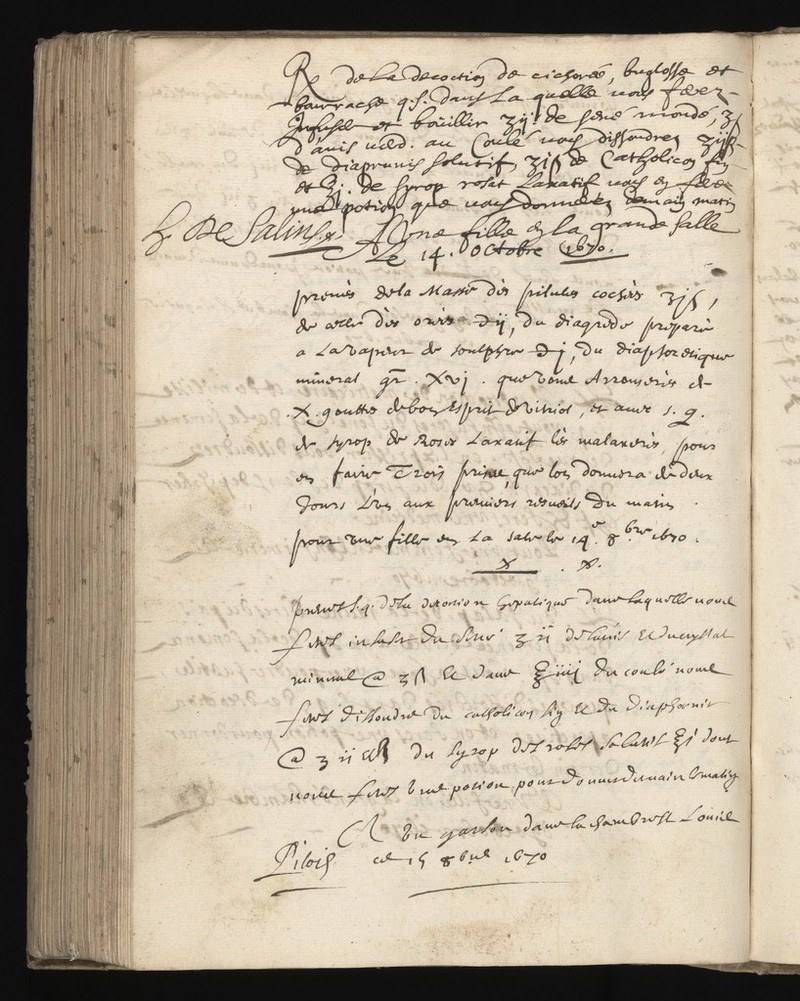 ℞ de la decoction de cichorée, buglosse et
bourrache q.s. dans La quelle vous ferez
Infuser et boüillir ʒij. de sené mondé, ʒſ
d'anis verd. au Coulé vous dissoudrez ʒijſ
de diaprunis solutif, ʒjſ de Catholicon fin
et ℥j. de syrop rosat Laxatif vous en ferez
une potion que vous donnerez demain matin
H De Salins. A Une fille en la grande salle
Le 14. Octobre 1670.
prenés de la Masse des pilules cochées ʒjſ,
de celle des ℈ij, du diagrede preparé
a La vapeur de soulphre ℈j, du diaphoretique
mineral gr. xvj. que vous Arrouserés de
.X. gouttes de bon Esprit de vitriol, et avec s. q.
de syrop de Roses Laxatif les malaxerés, pour
en faire Trois prises, que lon donnera de deux
Jours L'un aux premiers du matin.
pour une fille en La sale le 14e. 8bre 1670.
prenes s.q. de la decoction hepatique dans laquelle vous
feres infuser du sené ʒ ii de l'anis et du crystal
mineral @ ʒſ et dans ℥iiij du coulé vous
feres dissoudre du catholicon fin et du diaphoenic
@ ʒ ii et du syrop des roses solutif ℥i dont
vous feres une potion pour donner demain le matin
A un garson dans la chambre st Louis
Pilois ce 15 8bre 1670